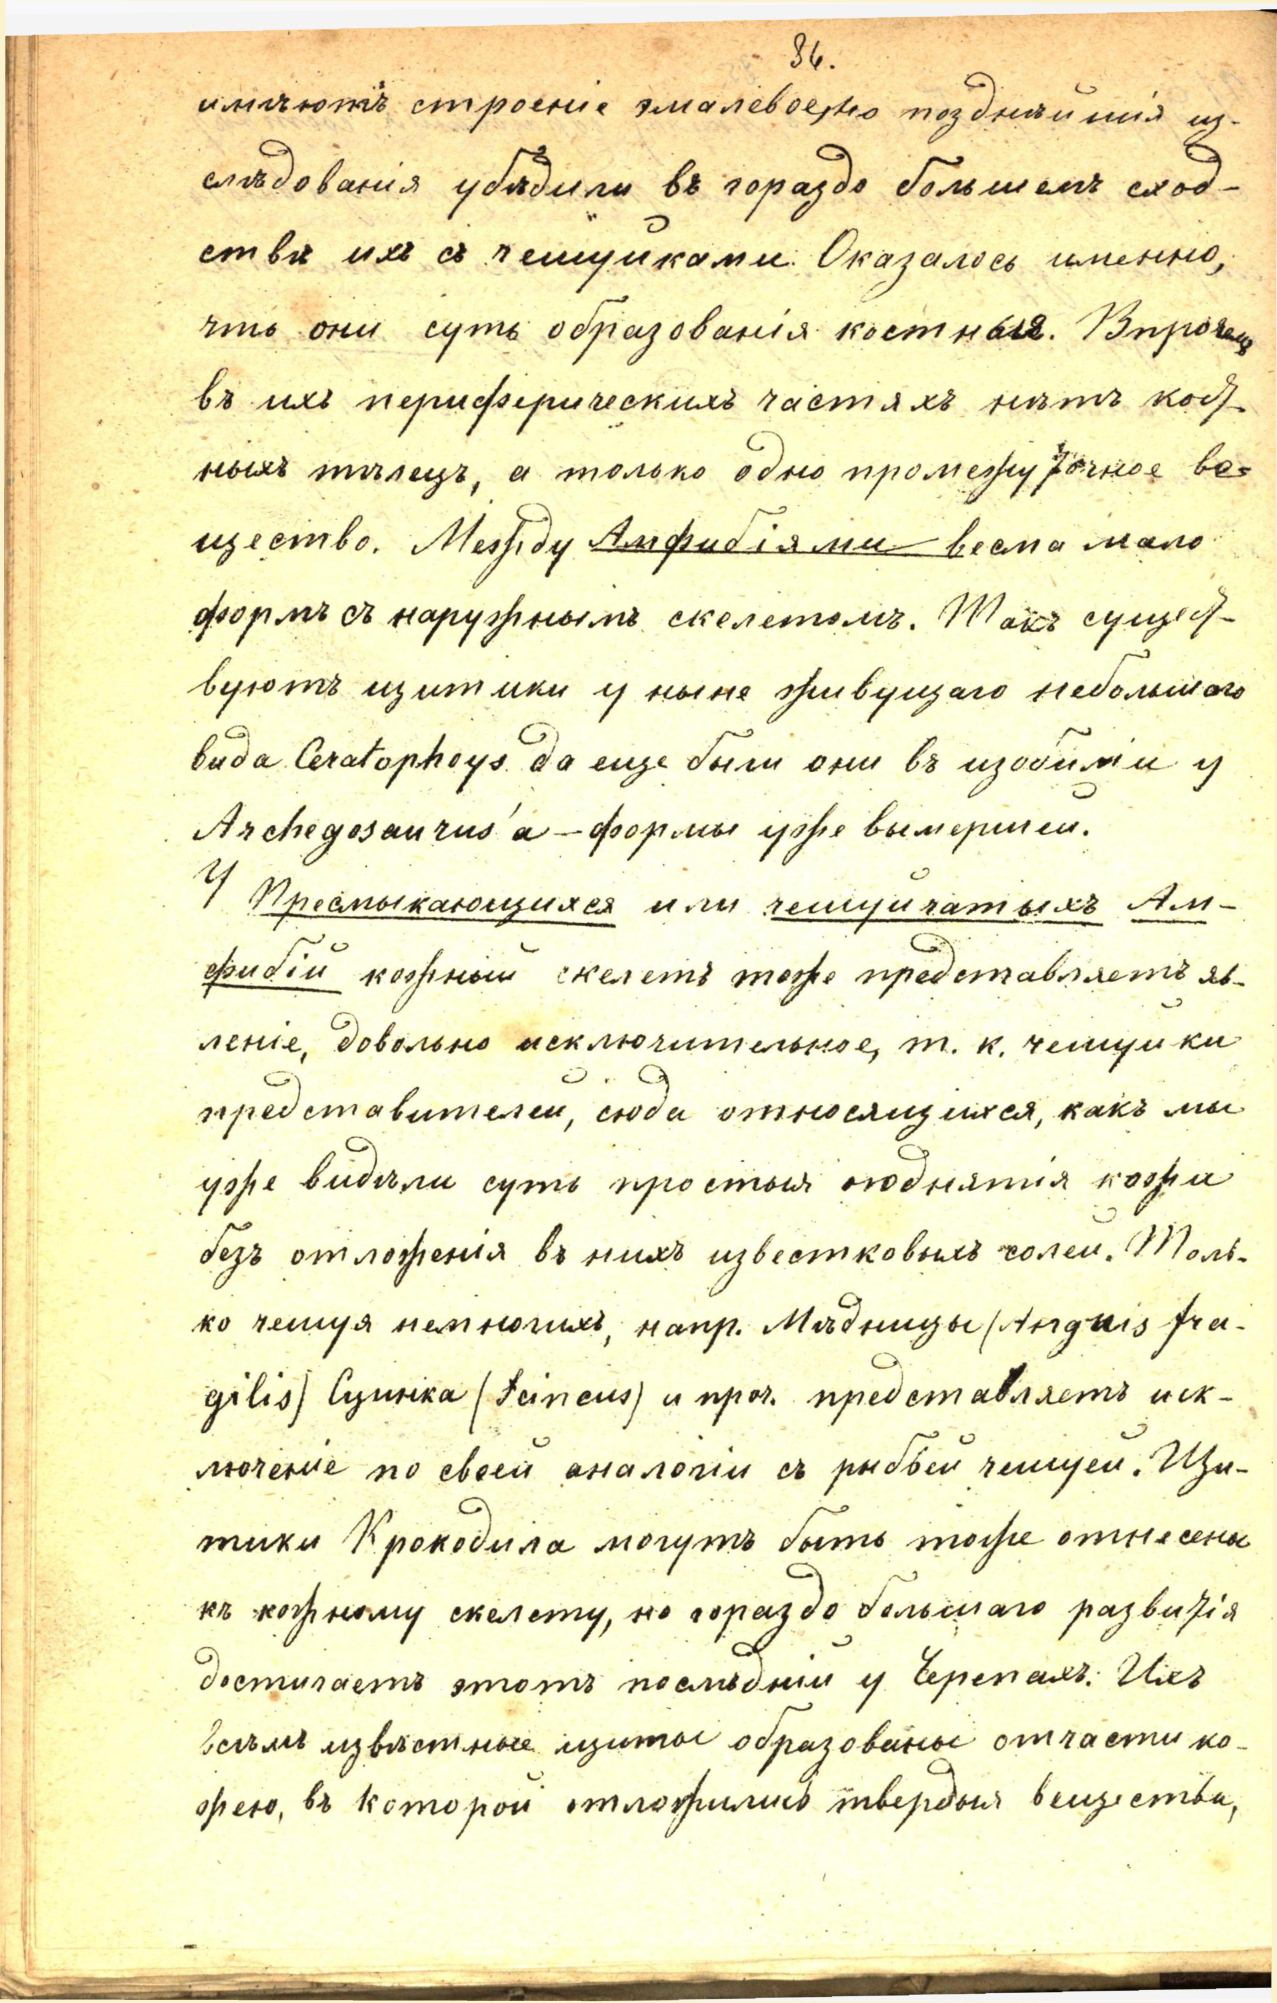 36.
имѣютъ строеніе эмалевое, но позднѣйшія из-
слѣдованія убѣдили въ гораздо большемъ сход-
ствѣ ихъ съ чешуйками. Оказалось именно,
что они суть образованія костныя. Впрочемъ
въ ихъ периферическихъ частяхъ нѣтъ кост-
ныхъ тѣлецъ, а только одно промежуточное ве-
щество. Между Амфибіями весма мало
формъ съ наружнымъ скелетомъ. Такъ сущест-
вуютъ щитики у ныне живущаго небольшаго
вида Ceratophoys да еще были они въ изобиліи у
Archegosaurus'a – формы уже вымершей.
У Пресмыкающихся или чешуйчатыхъ Ам-
фибій кожный скелетъ тоже представляетъ яв-
леніе, довольно исключительное, т. к. чешуйки
представителей, сюда относящихся, какъ мы
уже видѣли суть простыя поднятія кожи
безъ отложенія въ нихъ известковыхъ солей. Толь-
ко чешуя немногихъ, напр. Мѣдницы (Anguis fra-
gilis) Сцинка (Scincus) и проч. представляетъ иск-
лючение по своей аналогіи съ рыбьей чешуей. Щи-
тики Крокодила могутъ быть тоже отнесены
къ кожному скелету, но гораздо большаго развитія
достигаетъ этотъ послѣдній у Черепахъ. Ихъ
всѣмъ извѣстные щиты образованы отчасти ко-
жею, въ которой отложились твердыя вещества,